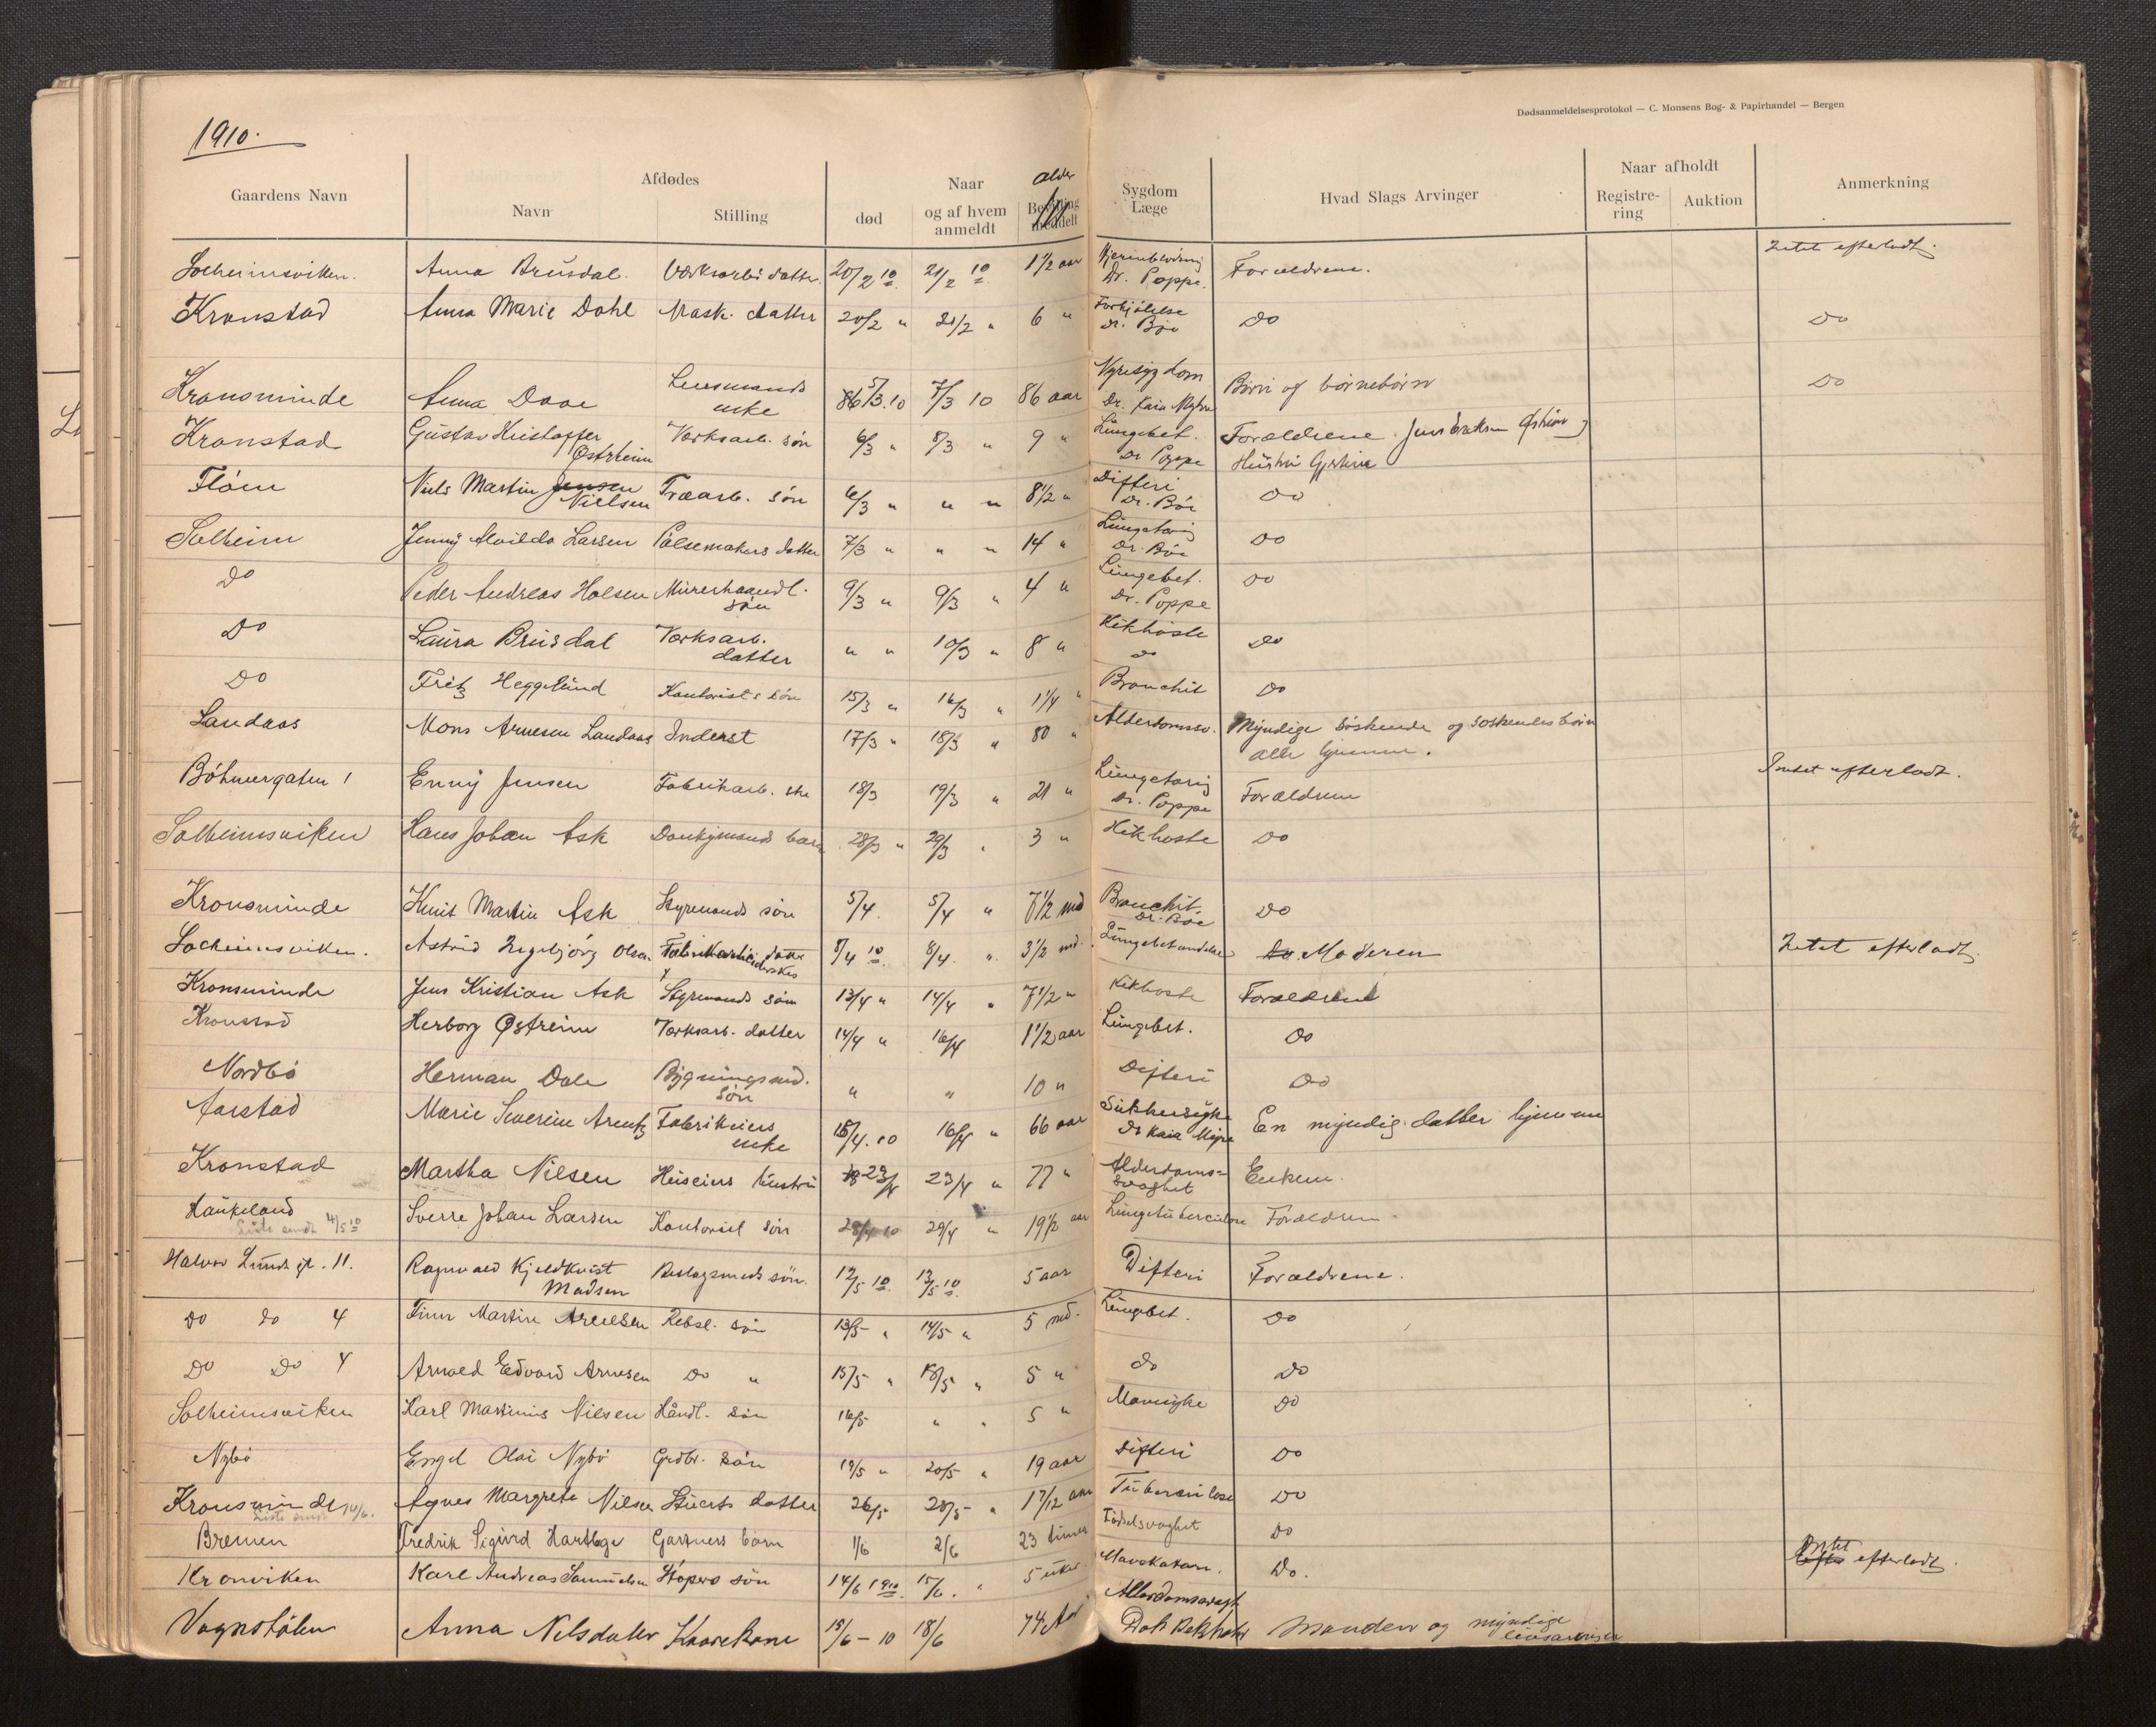 Dødsanmeldelsesprotokol — C. Monsens Bog- & Papirhandel — Bergen
1910.
Gaardens Navn
Afdødes
Navn
Stilling
Naar
død
og af hvem anmeldt
alder
Bevilling meddelt
Sygdom
Læge
Hvad Slags Arvinger
Naar afholdt
Registrering
Auktion
Anmerkning
Solheimsviken. Anna Brusdal. Værksarb. datter 20/2 10 21/2 10 1 1/2 aar Dr. Poppe. Forældrene. Intet efterladt.
Kronstad Anna Marie Dahl Mask. datter 20/2 " 21/2 " 6 " Forkjølelse Dr. Böe Do Do
Kronsminde Anna Daae Lensmands enke 5/3.10 7/3 10 86 aar Nyresygdom Dr. Kaia Börn og börnebörn Do
Kronstad Gustav Kristoffer Østrheim Værksarb. sön 6/3 " 8/3 " 9 " Lungebet. Dr Poppe Forældrene Hustru
Flöen Niels Martin Jensen Nielsen Træarb. sön 6/3 " " " 8 1/2 " Difteri Dr. Böe Do
Solheim Jenny Alvilda Larsen Pölsemakers datter 7/3 " " " 14 " Lungetæring Dr. Böe Do
Do Peder Andreas Holsen Murerhaandl. sön 9/3 " 9/3 " 4 " Lungebet. Dr. Poppe Do
Do Laura Brusdal Værksarb. datter " " 10/3 " 8 " Kikhoste do Do
Do Fritz Heggelund Kontorists sön 15/3 " 16/3 " 1 1/4 " Bronchit Do
Landaas Mons Arnesen Landaas Inderst 17/3 " 18/3 " 80 " Alderdomssv. Myndige söskende og söskendes börn alle hjemme.
Böhmergaten 1 Enny Jensen Fabrikarb. ske 18/3 19/3 " 21 " Lungetæring Dr. Poppe Forældrene Intet efterladt.
Solheimsviken Hans Johan Ask Donkymands barn 28/3 " 29/3 " 3 " Kikhoste Do
Kronsminde Knut Martin Ask Styrmands sön 5/4. 5/4 " 7 1/2 md Bronchit Dr. Böe Do
Solheimsviken. Astrid Ingebjörg Olsen Fabrikarbeiderskes datter 8/4 10 8/4. " 3 1/2 md. Lungebetændelse Do. Moderen Intet efterladt.
Kronsminde Jens Kristian Ask Styrmands sön 13/4 " 14/4 " 7 1/2 " Kikhoste Forældrene
Kronstad Herborg Østreim Værksarb. datter 14/4 " 16/4 1 1/2 aar Lungebet. Do
Nordbö Herman Dale Bygningssnd. sön " " 10 " Difteri Do
Aarstad Marie Severine Arentz Fabrikeiers enke 15/4.10 16/4 " 66 aar Sukkersyke Dr Kaia En myndig datter hjemme
Kronstad Martha Nilsen Huseiers hustru 23/4 23/4 " 77 " Alderdoms= svaghet Enkem.
Haukeland Liste sendt 4/5 10 Sverre Johan Larsen Kontorist sön 28/4 10 29/4 " 19 1/2 aar Lungetuberculose Forældrene.
Halvor Lunds gt. 11. Ragnvald Kjeldkvist Madsen Beslagsmeds sön. 12/5 10. 13/5 10. 5 aar Difteri Forældrene.
Do do 4 Finn Martin Arnesen Rebsl. sön 13/5 " 14/5 " 5 md. Lungebet. Do
Do Do 4 Arnold Edvard Arnesen Do " 15/5 " 18/5 " 5 " do Do
Solheimsviken Karl Martinius Nilsen Håndl. sön 16/5 " " 5 " Mavesyke Do
Nybö Engel Olai Nybö Grdbr. sön 19/5 " 20/5 " 19 aar Difteri Do
Kronsminde Liste sendt 14/6. Agnes Margrete Nilsen Stuerts datter 26/5 28/5 " 1 7/12 aar Tuberculose Do
Bremen Fredrik Sigurd Gartners barn 1/6 2/6 23 timer Födselsvaghet Do
Kronviken Karl Andreas Samuelsen Stöpers sön 14/6 1910. 15/6. " 5 uker Mavekatarr. Do. Intet efterladt.
Vognstölen Anna Nilsdatter Kaarekone 15/6-10 18/6 74 Aar Alderdomssvagh. Manden og myndige livsarvinger